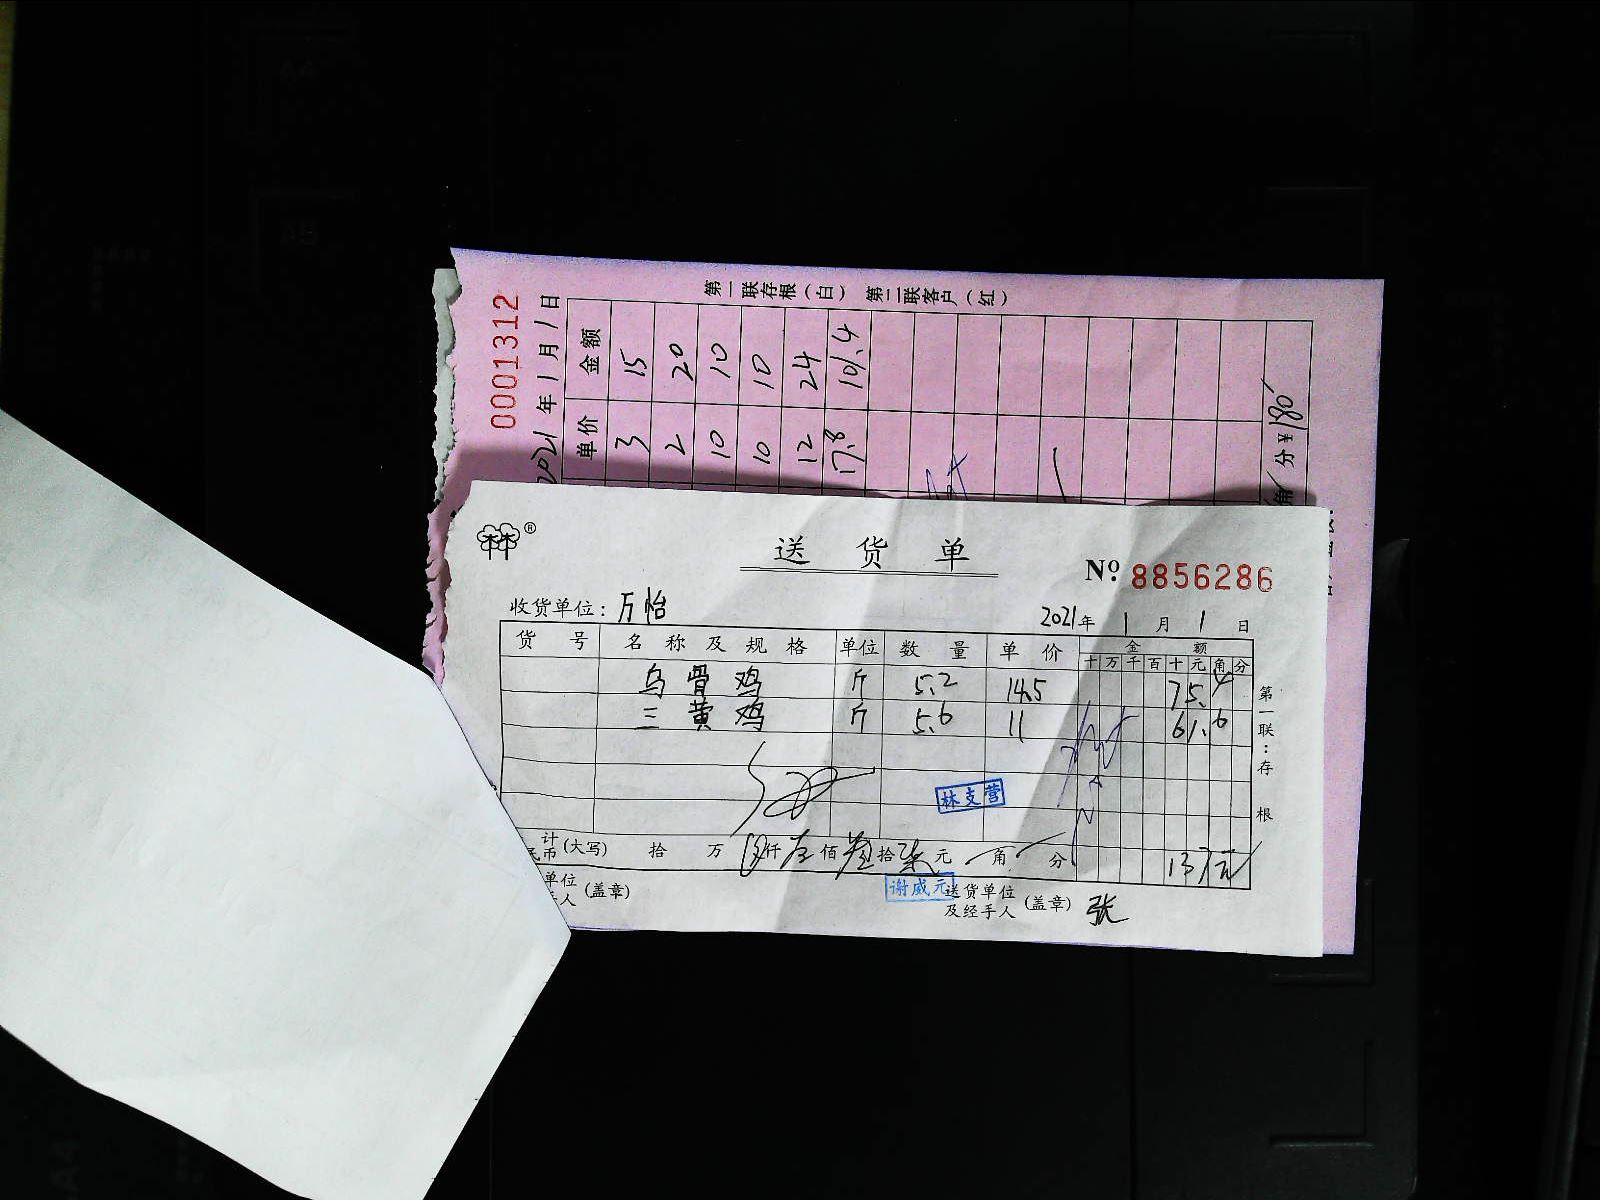 第一联存根(白) 第二联客户(红)
0001312
2021年1月1日
单价 金额
3 15
2 20
10 10
10 10
12 24
17.8 101.4
角 分 ¥180
送货单
№ 8856286
收货单位：万怡
2021年 1月 1日
货号 名称及规格 单位 数量 单价 金额
十万千百十元角分
乌骨鸡 斤 5.2 14.5 75.4
三黄鸡 斤 5.6 11 61.6
林支营
计 (大写) 拾 万 仟 壹佰叁拾柒元 角 分 137元
民币
谢威元
单位 (盖章)
手人
送货单位 (盖章) 张
及经手人
第一联：存根